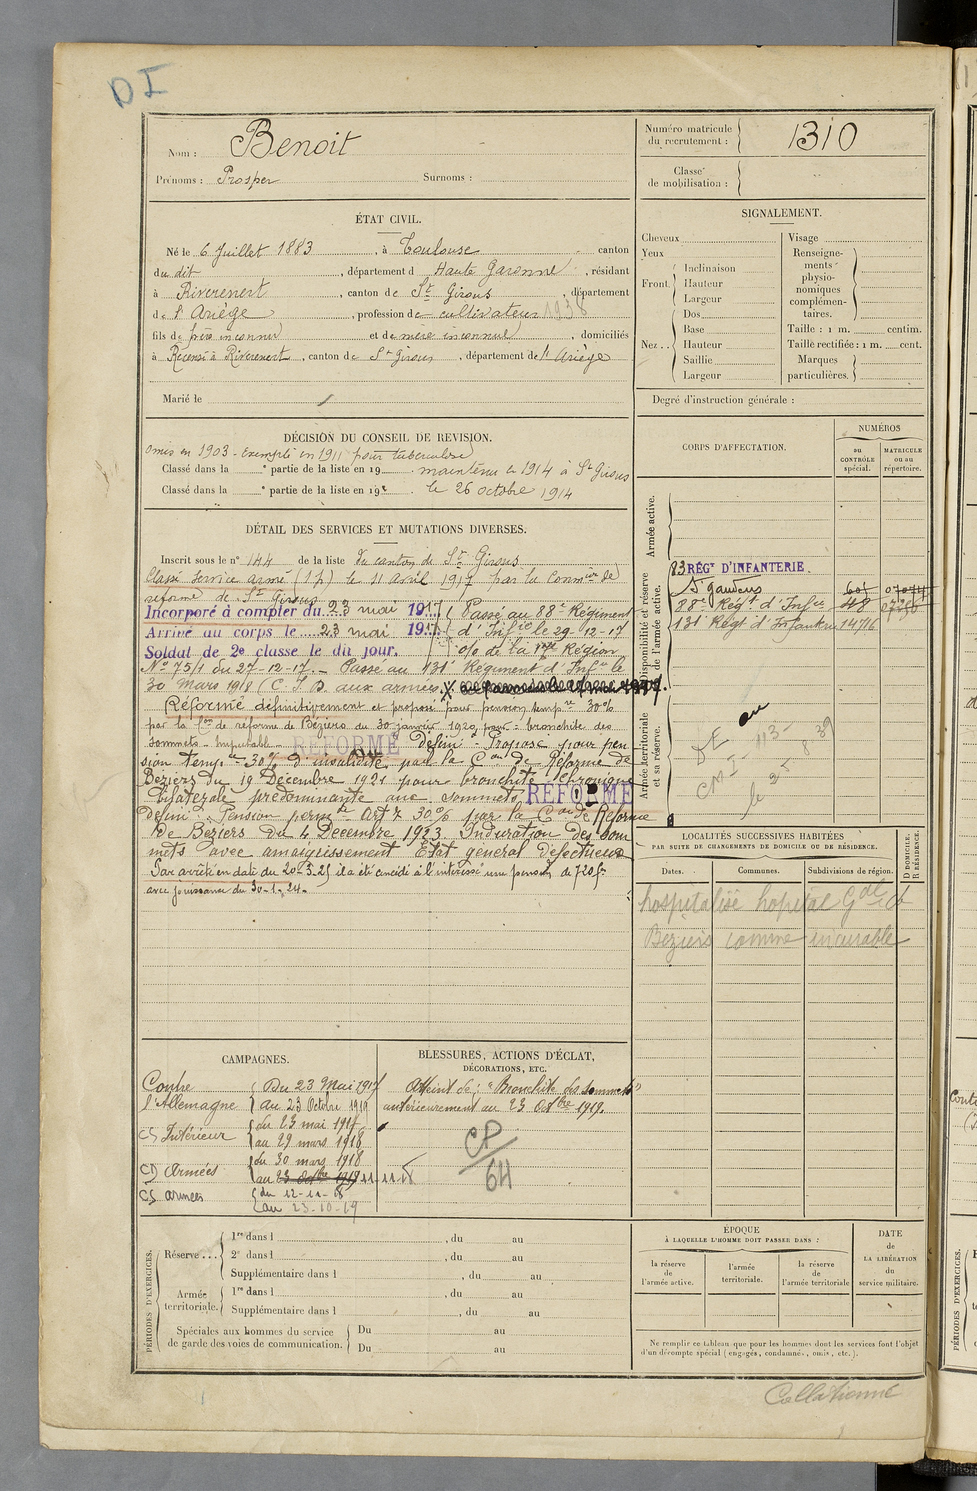 DI
Nom : Benoit
Prénoms : Prosper Surnoms :
Numéro matricule du recrutement : 1310
Classe de mobilisation :
ÉTAT CIVIL.
Né le 6 Juillet 1883, à Toulouse canton
du dit, département d Haute Garonne, résidant
à Riverenert, canton de St Girons, département
de l'Ariège, profession de cultivateur 1938
fils de père inconnu et de mère inconnue, domiciliés
à Recensé à Riverenert, canton de St Girons, département de l'Ariège
Marié le
SIGNALEMENT.
Cheveux
Yeux
Front. Inclinaison
Hauteur
Largeur
Nez.. Dos
Base
Hauteur
Saillie
Largeur
Visage
Renseignements physionomiques complémentaires.
Taille : 1 m. centim.
Taille rectifiée : 1 m. cent.
Marques particulières.
Degré d'instruction générale :
DÉCISION DU CONSEIL DE REVISION.
omis en 1903 - exempté en 1911 pour tuberculose
Classé dans la e partie de la liste en 19 maintenu en 1914 à St Girons
Classé dans la e partie de la liste en 19 le 26 octobre 1914
DÉTAIL DES SERVICES ET MUTATIONS DIVERSES.
Inscrit sous le n° 144 de la liste du canton de St Girons
Classé service armé (1 p) le 11 avril 1917 par la Commion de
réforme de St Girons
Incorporé à compter du 23 mai 1917 Passé au 88e Régiment
Arrivé au corps le 23 mai 1917 d'Infie le 29-12-17
Soldat de 2e classe le dit jour. o/o de la Région
N° 75/1 du 27-12-17. - Passé au 131e Régiment d'Infie le
30 Mars 1918 (C. I. D. aux armées)
Réformé définitivement et proposé pour pension tempre 30%
par la Con de réforme de Béziers du 30 janvier 1920 pour : bronchite des
sommets - Imputable - RÉFORMÉ Définif - Proposé pour pen
sion tempre 30% d'invalidité par la Con de Réforme de
Béziers du 19 Décembre 1921 pour bronchite chronique
bilatérale prédominante aux sommets RÉFORMÉ
Définif - Pension permte Art 7 30% par la Con de Réforme
de Béziers du 4 Décembre 1923. Induration des som
mets avec amaigrissement Etat général défectueux
Par arrêté en date du 20-3-25 il a été concédé à l'intéressé une pension de 720f
avec jouissance du 30-1-24.
CORPS D'AFFECTATION.
NUMÉROS
au CONTRÔLE spécial.
MATRICULE ou au répertoire.
Armée active.
Disponibilité et réserve de l'armée active.
83 RÉGt D'INFANTERIE.
St Gaudens
88e Régt d'Infie 48
131e Régt d'Infanterie 14716
Armée territoriale et sa réserve.
LOCALITÉS SUCCESSIVES HABITÉES
PAR SUITE DE CHANGEMENTS DE DOMICILE OU DE RÉSIDENCE.
Dates. Communes. Subdivisions de région.
D DOMICILE. R RÉSIDENCE.
hospitalisé hopital Gal d
Beziers comme incurable
CAMPAGNES.
Contre l'Allemagne
Du 23 Mai 1917
au 23 Octobre 1919
CS Intérieur
du 23 mai 1917
au 29 mars 1918
CD Armées
du 30 mars 1918
au 23 octbre 1919 11-11-18
CS armées
du 12-11-18
au 23-10-19
BLESSURES, ACTIONS D'ÉCLAT,
DÉCORATIONS, ETC.
Atteint de : "Bronchite des sommets"
antérieurement au 23 Octbre 1919.
CP/64
PÉRIODES D'EXERCICES.
Réserve ...
1re dans l , du au
2e dans l , du au
Supplémentaire dans l , du au
Armée territoriale.
1re dans l , du au
Supplémentaire dans l , du au
Spéciales aux hommes du service de garde des voies de communication.
Du au
Du au
ÉPOQUE
À LAQUELLE L'HOMME DOIT PASSER DANS :
la réserve de l'armée active.
l'armée territoriale.
la réserve de l'armée territoriale
DATE de LA LIBÉRATION du service militaire.
Ne remplir ce tableau que pour les hommes dont les services font l'objet
d'un décompte spécial (engagés, condamnés, omis, etc.).
Collationné